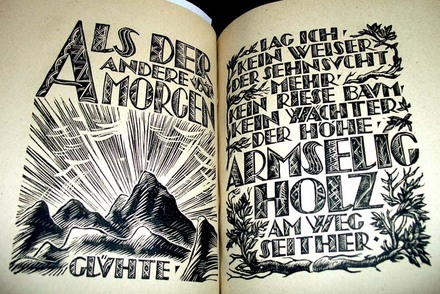 ALS DER
ANDERE
MORGEN
GLÜHTE ·
LAG ICH
KEIN WEISER
DER SEHNSUCHT
MEHR ·
KEIN RIESE BAUM ·
KEIN WÄCHTER
DER HÖHE ·
ARMSELIG
HOLZ
AM WEG
SEITHER ·